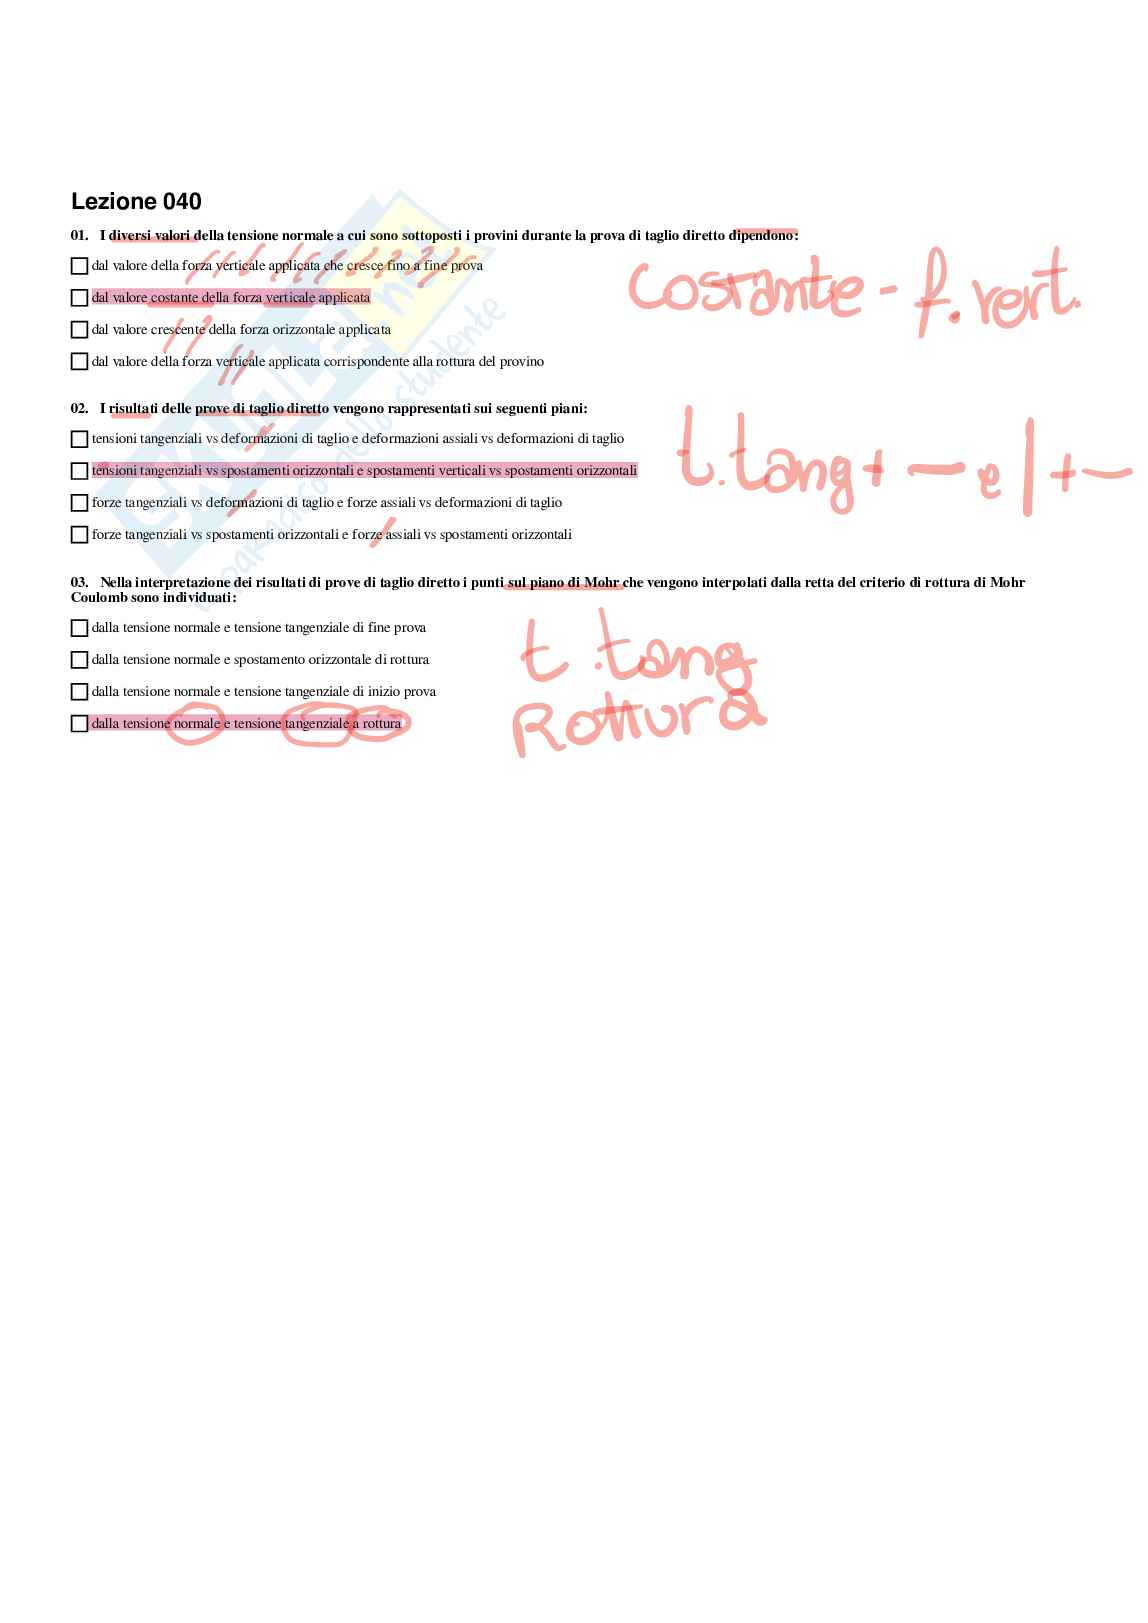 Lezione 040
01. I diversi valori della tensione normale a cui sono sottoposti i provini durante la prova di taglio diretto dipendono:
dal valore della forza verticale applicata che cresce fino a fine prova
dal valore costante della forza verticale applicata
dal valore crescente della forza orizzontale applicata
dal valore della forza verticale applicata corrispondente alla rottura del provino
costante - f. vert.
02. I risultati delle prove di taglio diretto vengono rappresentati sui seguenti piani:
tensioni tangenziali vs deformazioni di taglio e deformazioni assiali vs deformazioni di taglio
tensioni tangenziali vs spostamenti orizzontali e spostamenti verticali vs spostamenti orizzontali
forze tangenziali vs deformazioni di taglio e forze assiali vs deformazioni di taglio
forze tangenziali vs spostamenti orizzontali e forze assiali vs spostamenti orizzontali
t. tang + — e | + —
03. Nella interpretazione dei risultati di prove di taglio diretto i punti sul piano di Mohr che vengono interpolati dalla retta del criterio di rottura di Mohr
Coulomb sono individuati:
dalla tensione normale e tensione tangenziale di fine prova
dalla tensione normale e spostamento orizzontale di rottura
dalla tensione normale e tensione tangenziale di inizio prova
dalla tensione normale e tensione tangenziale a rottura
t. tang
Rottura
SKUOLA.net
il paradiso dello studente